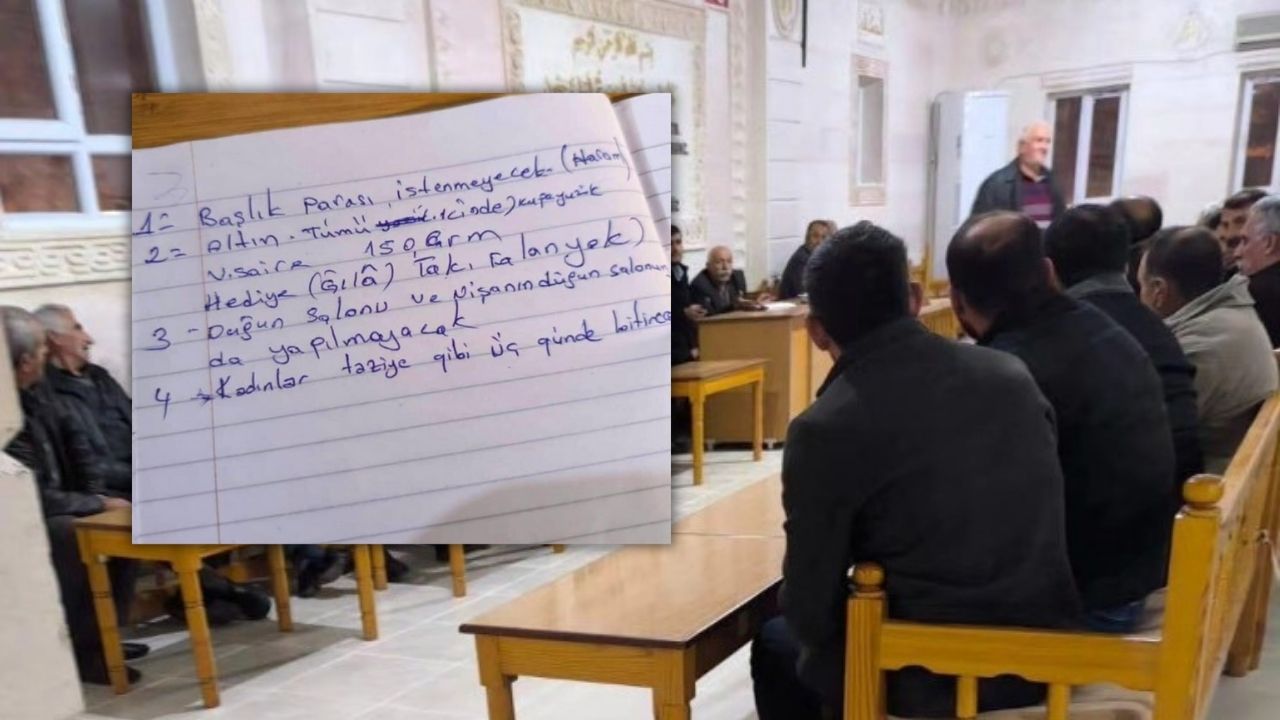 1= Başlık parası istenmeyecek (Haram)
2= Altın. Tümü içinde) küpe yüzük
v.saire 150 Grm
Hediye (Gılâ) Takı Falan yok)
3 - Düğün Salonu ve Nişanın düğün salonun
da yapılmayacak
4 → Kadınlar taziye gibi üç günde bitirece